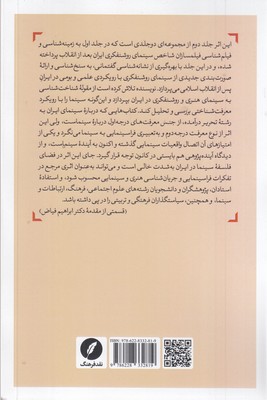 این اثر جلد دوم از مجموعه‌ای دوجلدی است که در جلد اول به زمینه‌شناسی و
فیلم‌شناسی فیلمسازان شاخص سینمای روشنفکری ایران بعد از انقلاب پرداخته
شده، و در این جلد با بهره‌گیری از نشانه‌شناسی گفتمانی، به سنخ‌شناسی و ارائۀ
صورت‌بندی جدیدی از سینمای روشنفکری با رویکردی علمی و بومی در ایران
پس از انقلاب اسلامی می‌پردازد. نویسنده تلاش کرده است از مقولۀ شناخت‌شناسی
به سینمای هنری و روشنفکری در ایران بپردازد و این‌گونه سینما را با رویکرد
معرفت‌شناختی بررسی و تحلیل کند. کتاب‌هایی که دربارۀ سینمای ایران به
رشتۀ تحریر درآمده، از جنس معرفت‌های درجه‌اول دربارۀ سینماست، ولی این
اثر از نوع معرفت درجه‌دوم و به‌تعبیری فراسینمایی به سینما می‌نگرد و یکی از
امتیازهای آن اتصال واقعیات سینمایی گذشته و اکنون به آیندۀ سینماست، و از
دیدگاه آینده‌پژوهی هم بایستی در کانون توجه قرار گیرد. جای این اثر در فضای
فلسفۀ سینما در ایران به‌شدت خالی است و به‌عنوان اثری مرجع در
تفکرات فراسینمایی و جریان‌شناسی هنری و سینمایی محسوب شود، و استفادۀ
استادان، پژوهشگران و دانشجویان رشته‌های علوم اجتماعی، فرهنگ، ارتباطات و
سینما، و همچنین، سیاستگذاران فرهنگی و تربیتی را در پی داشته باشد.
(قسمتی از مقدمۀ دکتر ابراهیم فیاض)
ISBN: 978-622-8332-81-9
9 786228 332819
نقد فرهنگ